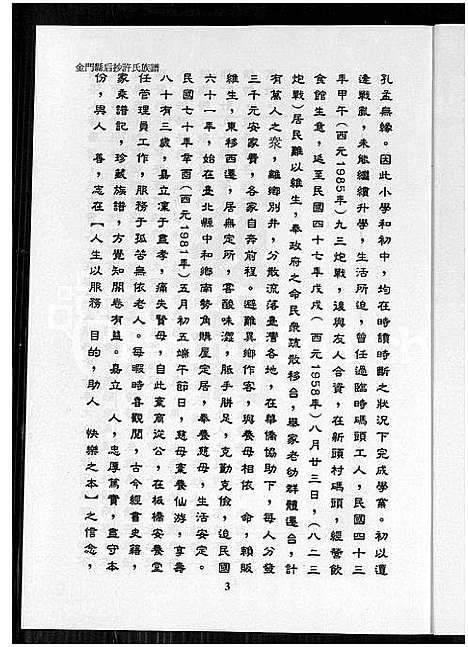 金門縣后抄許氏族譜
孔孟無緣。因此小學和初中，均在時讀時斷之狀況下完成學業。初以遭
逢戰亂，未能繼續升學，生活所迫，曾任過臨時碼頭工人，民國四十三
年甲午（西元1985年）九三炮戰，後與友人合資，在新頭村碼頭，經營飲
食館生意，延至民國四十七年戊戌（西元1958年）八月廿三日，（八二三
炮戰）居民難以維生，奉政府之命民眾疏散移台，舉家老幼群體遷台，計
有萬人之眾，離鄉別井，分散流落臺灣各地，在華僑協助下，每人分發
三千元安家費，各家自奔前程。避難異鄉作客，與養母相依 命，賴販
維生，東移西遷，居無定所，客酸味澀，胝手胼足，克勤克儉，迨民國
六十一年，始在臺北縣中和鄉南勢角購屋定居，奉養慈母，生活安定。
民國七十年辛酉（西元1981年）五月初五端午節日，慈母棄養仙游，享壽
八十有三歲，嘉立凜于盡孝，痛失賢母，自此棄商從公，在板橋安養堂
任管理員工作，服務于孤苦無依老人。每暇時喜觀閱，古今經書史籍，
家乘譜記，珍藏族譜，方覺知開卷有益。嘉立 人，忠厚篤實，盡守本
份，與人 善，志在【人生以服務 目的，助人 快樂之本】之信念，
3